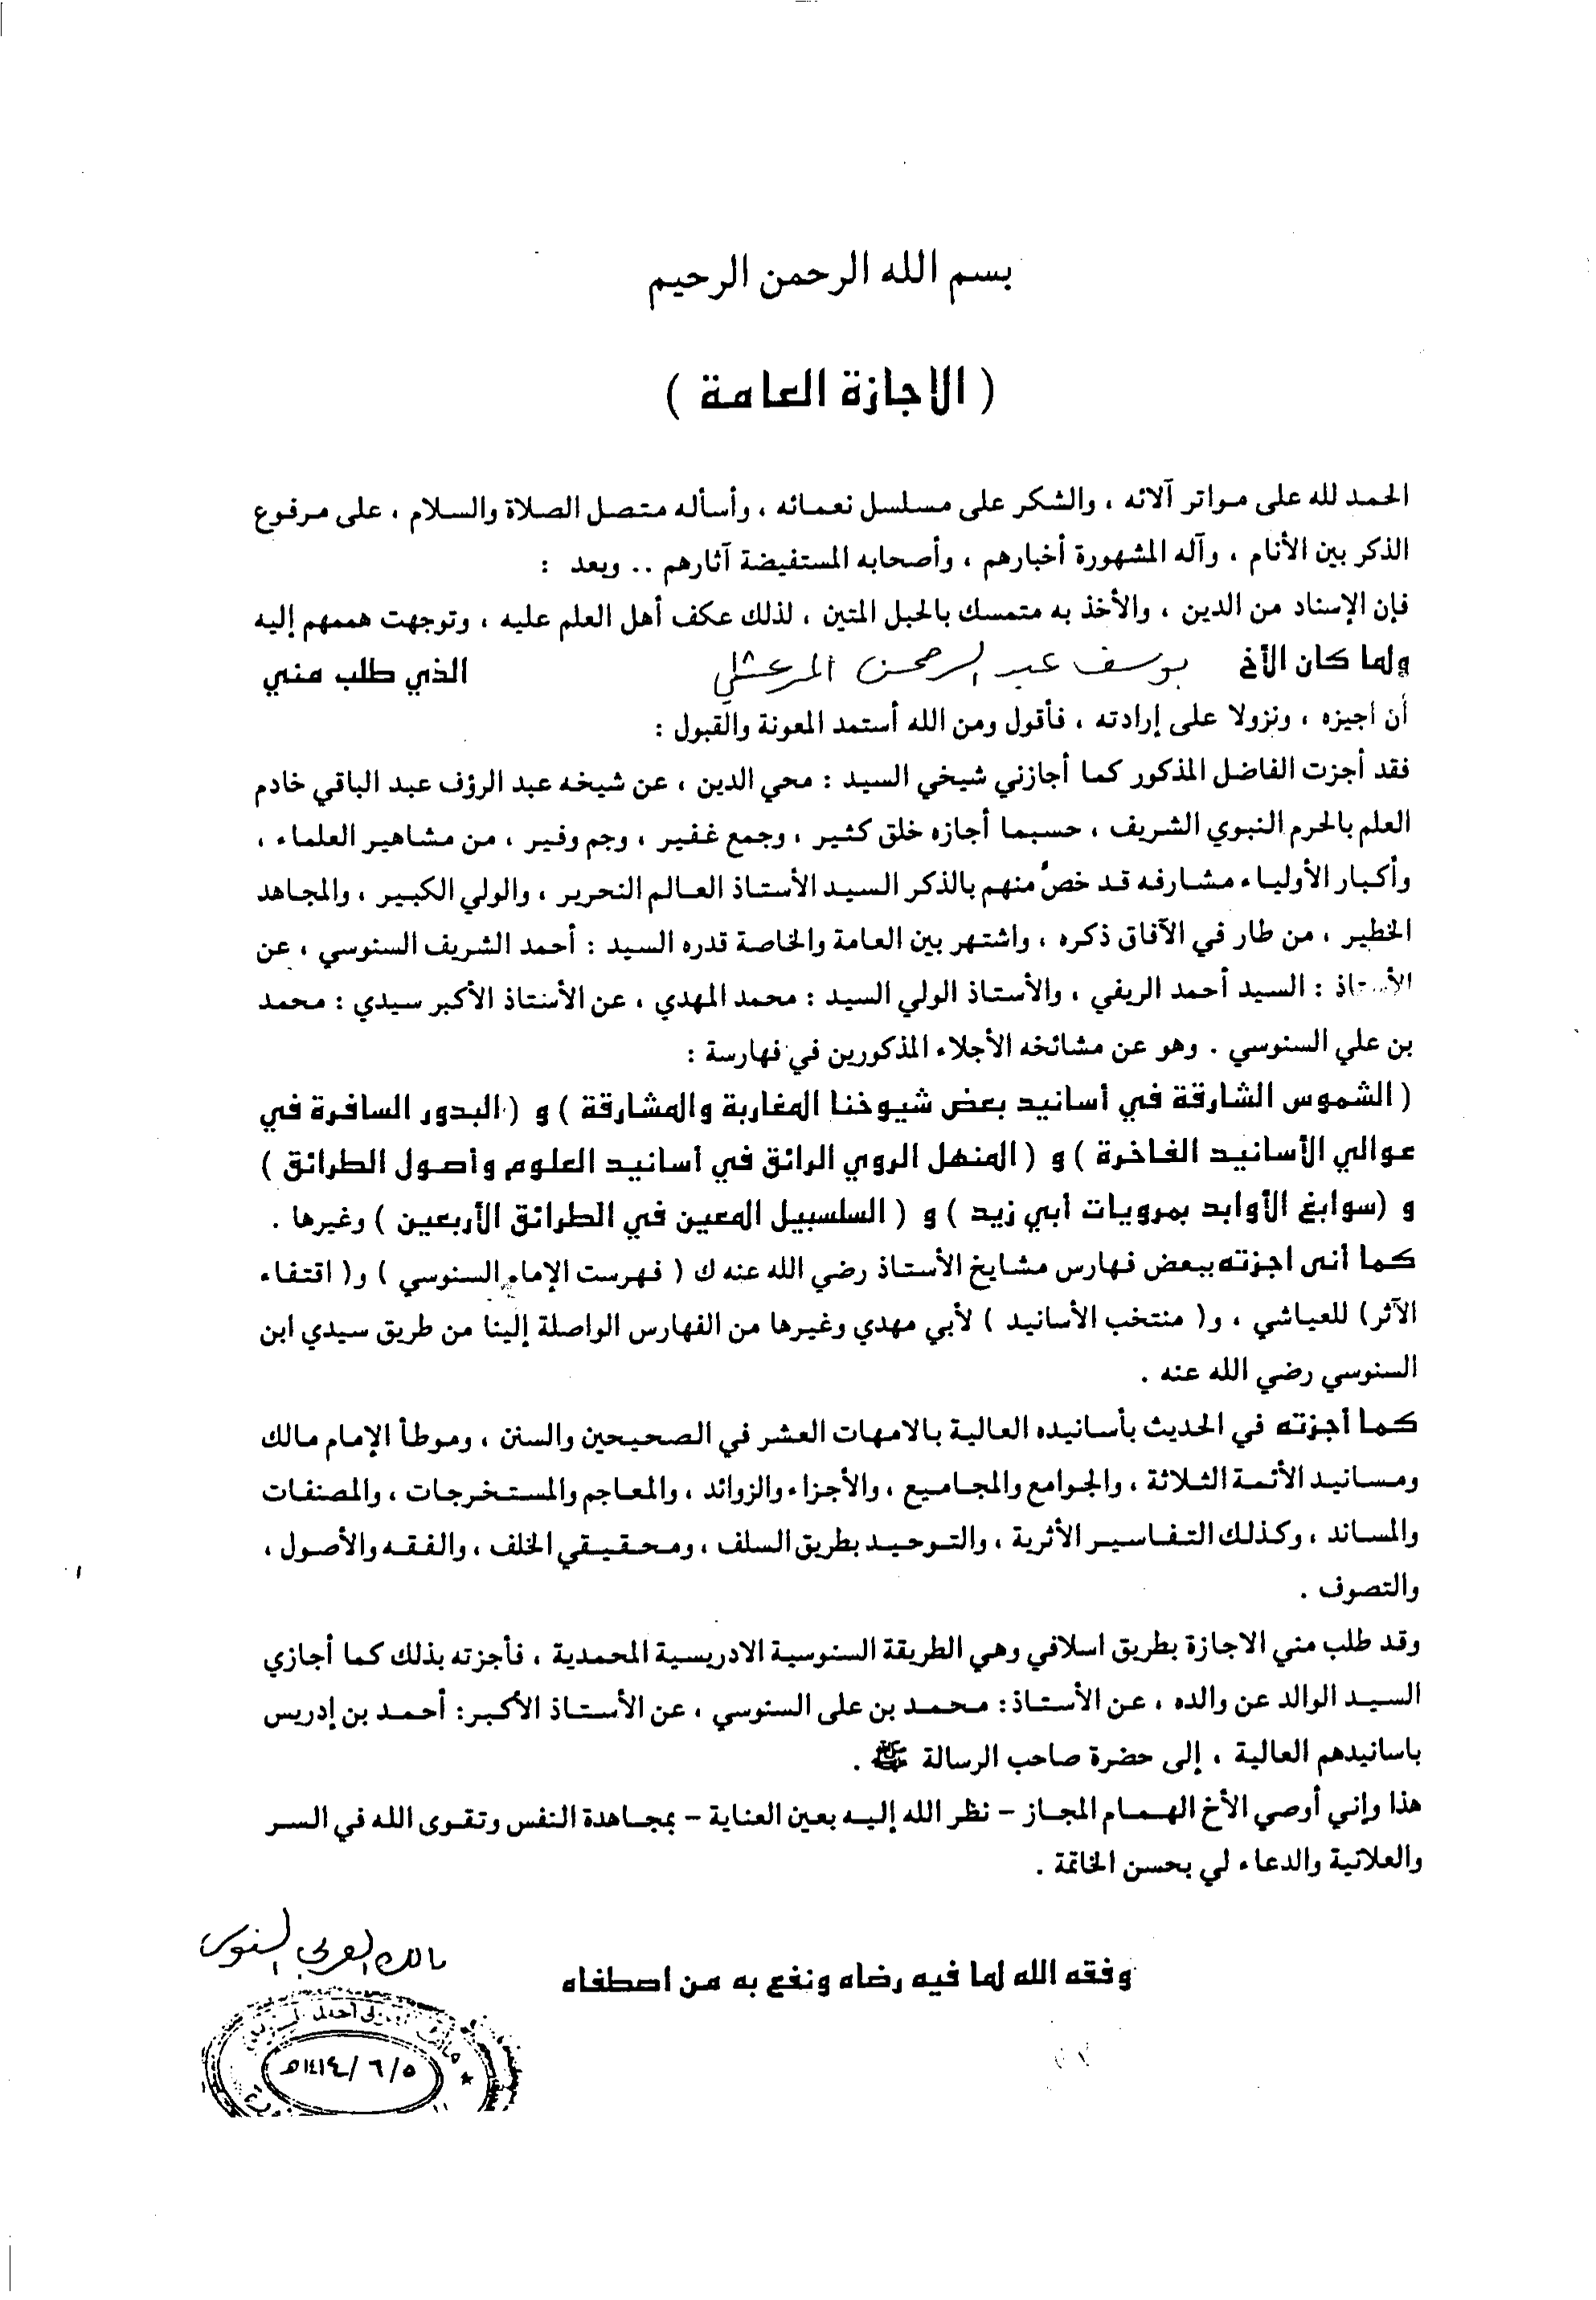 بسم الله الرحمن الرحيم
( الاجازة العامة )
الحمد لله على مواتر آلائه ، والشكر على مسلسل نعمائه ، وأسأله متصل الصلاة والسلام ، على مرفوع
الذكر بين الأنام ، وآله المشهورة أخبارهم ، وأصحابه المستفيضة آثارهم .. وبعد :
فإن الإسناد من الدين ، والأخذ به متمسك بالحبل المتين ، لذلك عكف أهل العلم عليه ، وتوجهت هممهم إليه
ولما كان الأخ يوسف عبد الرحمن المرعشلي الذي طلب مني
أن اجيزه ، ونزولا على إرادته ، فأقول ومن الله أستمد المعونة والقبول :
فقد أجزت الفاضل المذكور كما أجازني شيخي السيد : محي الدين ، عن شيخه عبد الرؤف عبد الباقي خادم
العلم بالحرم النبوي الشريف ، حسبما أجازه خلق كثير ، وجمع غفير ، وجم وفير ، من مشاهير العلماء ،
وأكبار الأولياء مشارفه قد خصُ منهم بالذكر السيد الأستاذ العالم النحرير ، والولي الكبير ، والمجاهد
الخطير ، من طار في الآفاق ذكره ، واشتهر بين العامة والخاصة قدره السيد : أحمد الشريف السنوسي ، عن
الأستاذ : السيد أحمد الريفي ، والأستاذ الولي السيد : محمد المهدي ، عن الأستاذ الأكبر سيدي : محمد
بن علي السنوسي . وهو عن مشائخه الأجلاء المذكورين في فهارسة :
( الشموس الشارقة في أسانيد بعض شيوخنا المغاربة والمشارقة ) و ( البدور السافرة في
عوالي الأسانيد الفاخرة ) و ( المنهل الروي الرائق في أسانيد العلوم وأصول الطرائق )
و (سوابغ الأوابد بمرويات أبي زيد ) و ( السلسبيل المعين في الطرائق الأربعين ) وغيرها .
كما أنى اجزته ببعض فهارس مشايخ الأستاذ رضي الله عنه ك ( فهرست الإمام السنوسي ) و( اقتفاء
الآثر) للعياشي ، و( منتخب الأسانيد ) لأبي مهدي وغيرها من الفهارس الواصلة إلينا من طريق سيدي ابن
السنوسي رضي الله عنه .
كما أجزته في الحديث بأسانيده العالية بالامهات العشر في الصحيحين والسنن ، وموطأ الإمام مالك
ومسانيد الأئمة الثلاثة ، والجوامع والمجاميع ، والأجزاء والزوائد ، والمعاجم والمستخرجات ، والمصنفات
والمساند ، وكذلك التفاسير الأثرية ، والتوحيد بطريق السلف ، ومحقيقي الخلف ، والفقه والأصول ،
والتصوف .
وقد طلب مني الاجازة بطريق اسلافي وهي الطريقة السنوسية الادريسية المحمدية ، فأجزته بذلك كما أجازي
السيد الوالد عن والده ، عن الأستاذ: محمد بن على السنوسي ، عن الأستاذ الأكبر: أحمد بن إدريس
باسانيدهم العالية ، إلى حضرة صاحب الرسالة ﷺ .
هذا وإني أوصي الأخ الهمام المجاز - نظر الله إليه بعين العناية - بمجاهدة النفس وتقوى الله في السر
والعلانية والدعاء لي بحسن الخاتمة .
مالك العربي السنوسي
وفقه الله لما فيه رضاه ونفع به من اصطفاه
٥/٦/١٤١٤هـ